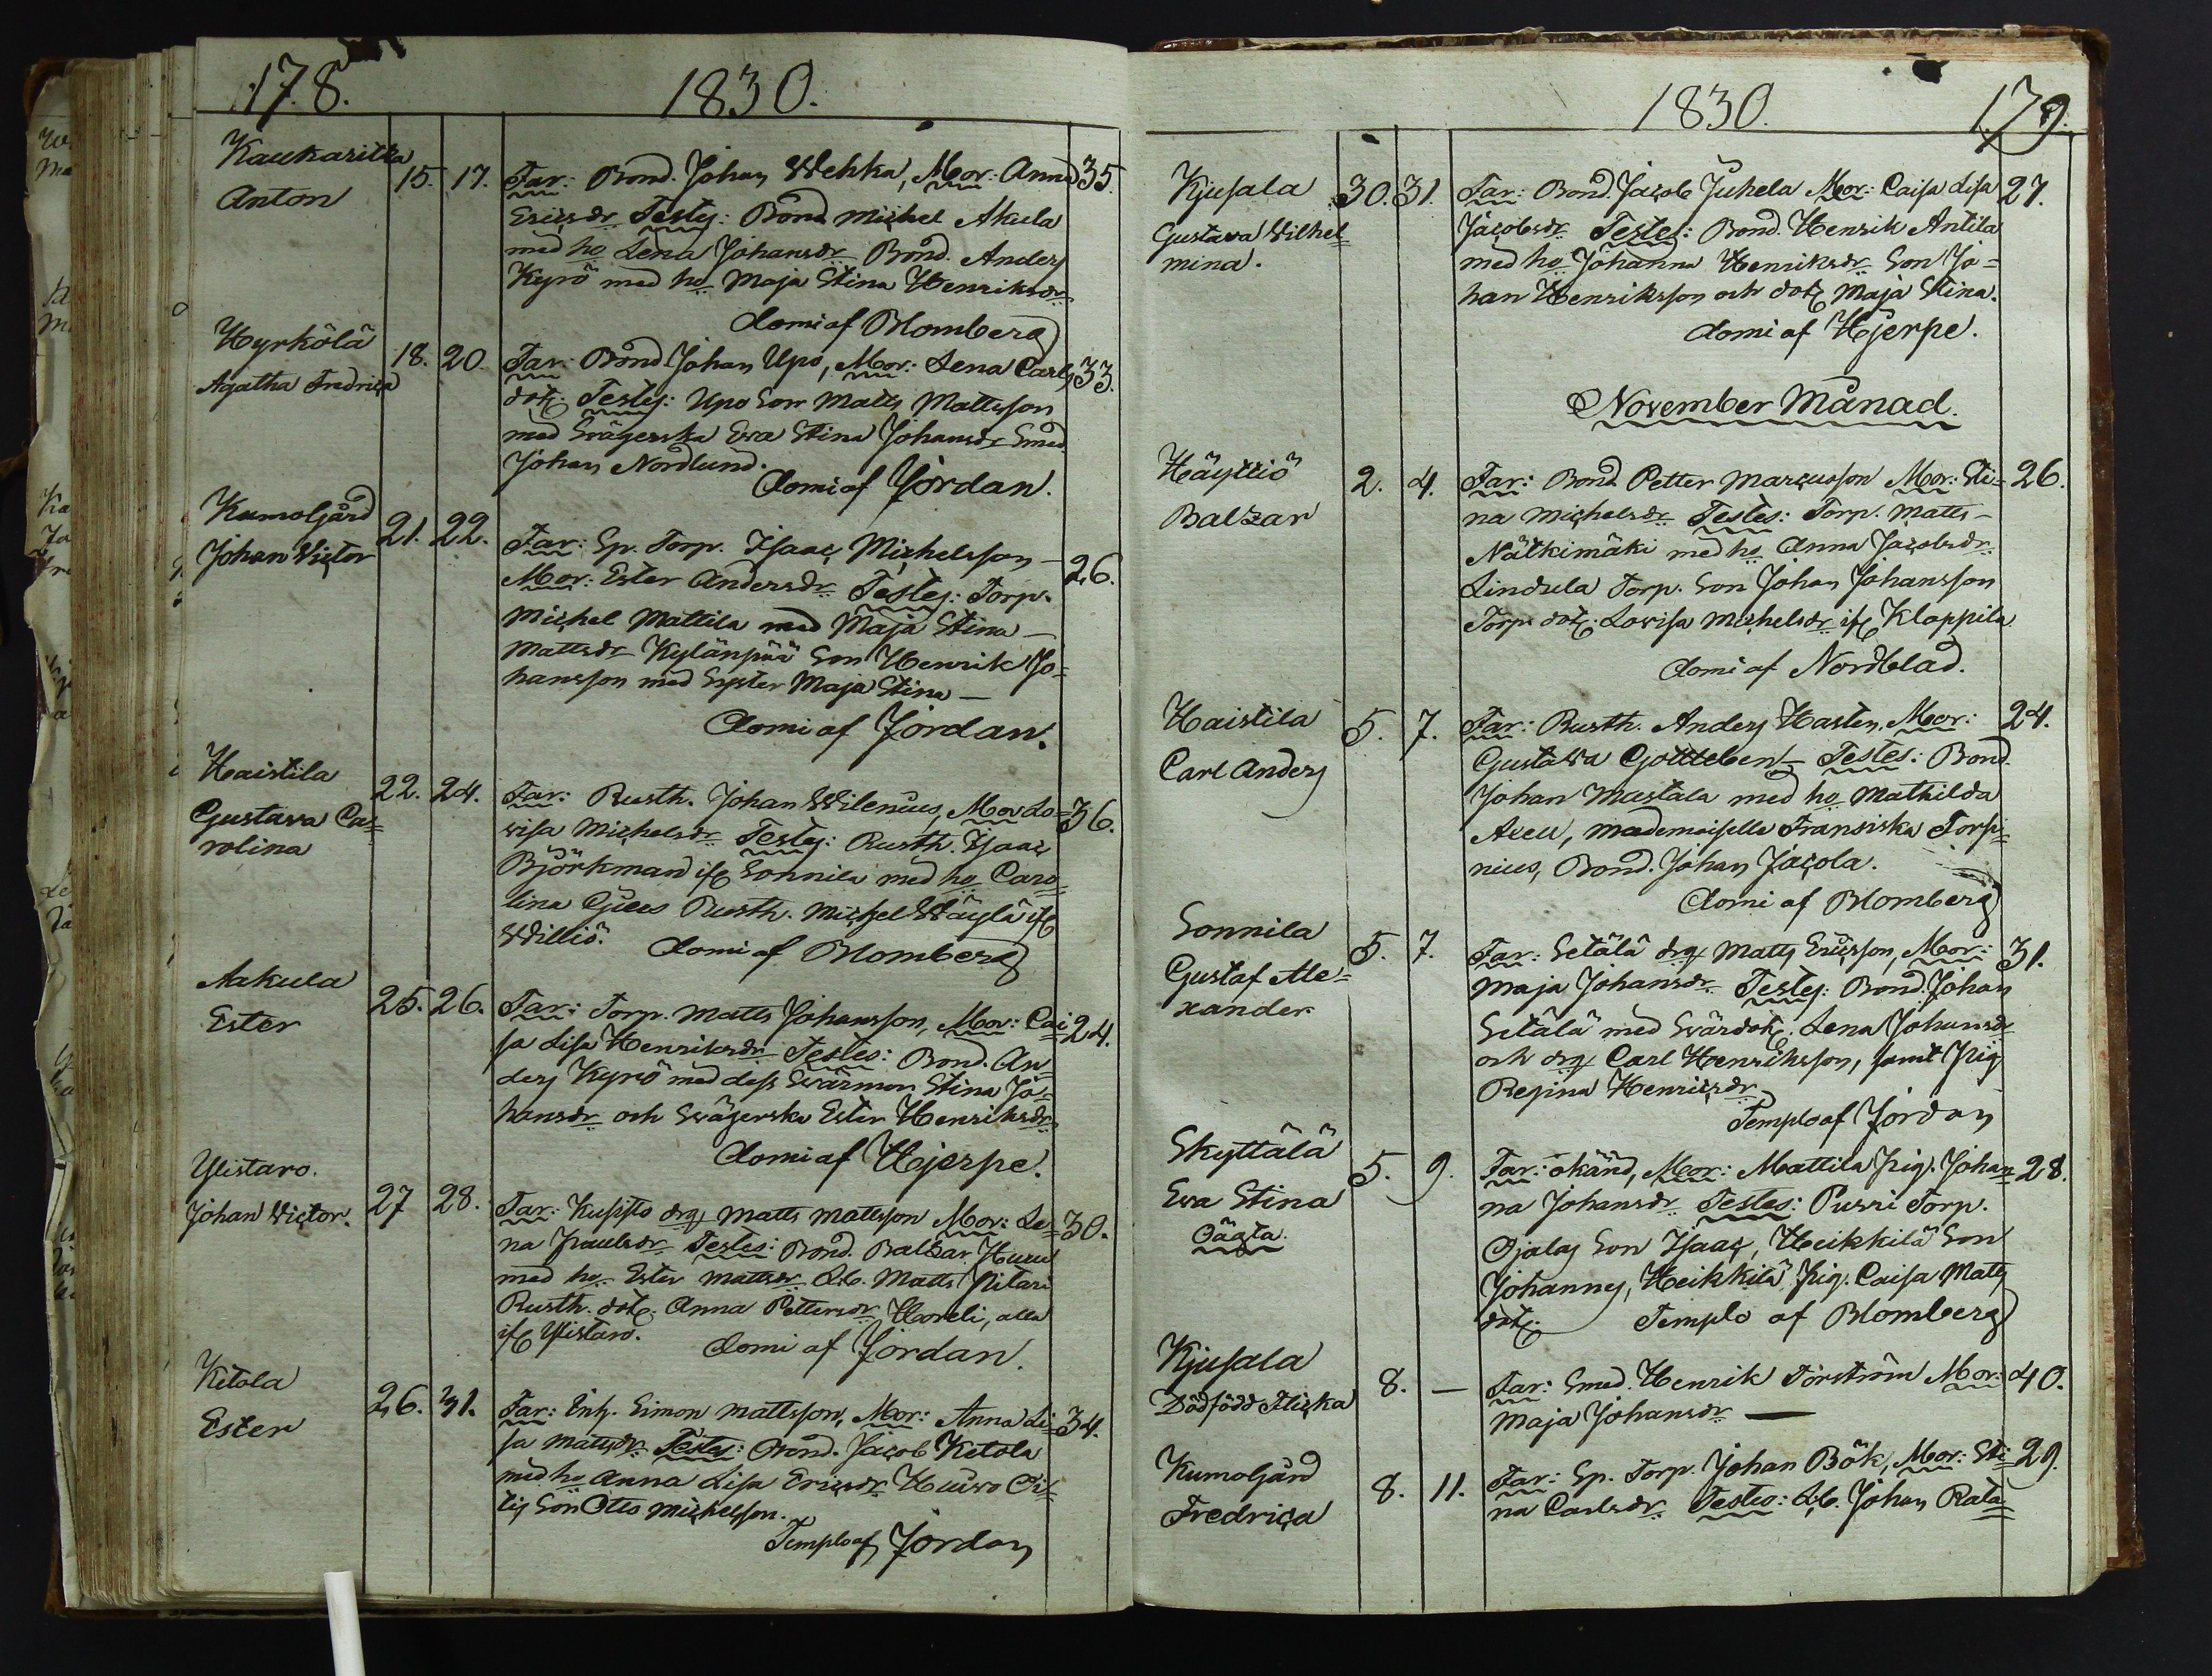 178.
1830.
Kaukaritza
Anton
15. 17.
Far: Bond. Johan Wehka, Mor: Anna 35.
Ericsdr Testes: Bond Michel Akula
med ho Lena Johansdr Bond. Anders
Kyrö med ho Maja Stina Henriksdr
domi af Blomberg
Hyrkölä
Agatha Fredrica
18. 20.
Far: Bond Johan Upo, Mor: Lena Carls 33.
dot. Testes: Upo Son Matts Mattsson
med Svägerska Eva Stina Johansdr Smed
Johan Nordlund.
domi af Jordan.
Kumogård
Johan Victor
21. 22.
Far: Sp. Torp. Isaac Michelsson – 26.
Mor: Ester Andersdr Testes: Torp.
Michel Mattila med Maja Stina –
Mattsdr Kylänpää Son Henrik Jo=
hansson med Syster Maja Stina –
domi af Jordan.
Haistila
Gustava Ca=
rolina
22. 24.
Far: Rusth. Johan Wilenius, Mor Lo= 36.
visa Michelsdr Testes: Rusth. Isaac
Björkman if Sonnila med ho Caro=
lina Gjees Rusth. Michel Wäylä if
Willio.
domi af Blomberg
Aakula
Ester
25. 26.
Far: Torp. Matts Johansson, Mor: Cai 24.
sa Lisa Henriksdr Testes: Bond. An=
ders Kyrö med dess Svärmor Stina Jo=
hansdr och Svägerska Ester Henriksdr
domi af Hjerpe.
Ylistaro.
Johan Victor.
27 28.
Far: Kuppo drg Matts Mattsson Mor: Le= 30.
na Paulsdr Testes: Bond. Balzar Huru
med ho Ester Mattsdr Lb. Matts Pitari
Rusth. dot. Anna Pettersdr Horeli, alla
if Ylistaro.
domi af Jordan.
Ketola
Ester
26. 31.
Far: Enk. Simon Mattsson, Mor: Anna Li= 34.
sa Mattsdr Testes: Bond. Jacob Ketola
med ho Anna Lisa Ericsdr
Son Otto Michelsson.
Templo af Jordan
1830.
179.
Kjusala
Gustava Wilhel=
mina.
30. 31.
Far: Bond. Jacob Juhela Mor: Caisa Lisa 27.
Jacobsdr Testes: Bond. Henrik Antila
med ho Johanna Henriksdr Son Jo=
han Henriksson och dot. Maja Stina.
domi af Hjerpe.
November Månad.
Häyttiö
Balzar
2. 4.
Far: Bond Petter Marcusson Mor: Sti= 26.
na Michelsdr Testes: Torp. Matts –
Nätkimäki med ho Anna Jacobsdr
Lindula Torp. Son Johan Johansson
Torp. dot. Lovisa Michelsdr if Kloppila
domi af Nordblad.
Haistila
Carl Anders
5. 7.
Far: Rusth. Anders Hasten, Mor: 24.
Gustava Gottleben – Testes: Bond
Johan Mustala med ho Mathilda
Axell, mademoiselle Fransiska Forsi=
nius, Bond. Johan Jacola.
domi af Blomberg
Sonnila
Gustaf Ale=
xander
5. 7.
Far: Setälä drg Matts Ericsson, Mor: 31.
Maja Johansdr Testes: Bond. Johan
Setälä med Svärdot. Lena Johansdr
och drg Carl Henriksson, samt Pig
Regina Henricsdr
Templo af Jordan
Skyttälä
Eva Stina
Oägta.
5. 9.
Far: okänd, Mor: Mattila Pig. Johan= 28.
na Johansdr Testes: Pusri Torp.
Ojalas Son Isaac, Heikkilä Son
Johannes, Heikkilä Pig. Caisa Mats
dot.
Templo af Blomberg
Kjusala
Dödfödd Flicka
8. –
Far: Smed. Henrik Törström Mor: 40.
Maja Johansdr –
Kumogård
Fredrica
8. 11.
Far: Sp. Torp. Johan Bök, Mor: Sti= 29.
na Carlsdr. Testes: Lb. Johan Rata=